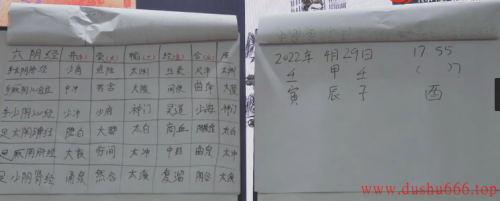 六阴经 井(木) 荥(火) 输(土) 经(金) 合(水) 原
手太阴肺经 少商 鱼际 太渊 经渠 尺泽 太渊
手厥阴心包经 中冲 劳宫 大陵 间使 曲泽 大陵
手少阴心经 少冲 少府 神门 灵道 少海 神门
足太阴脾经 隐白 大都 太白 商丘 阴陵泉 太白
足厥阴肝经 大敦 行间 太冲 中封 曲泉 太冲
足少阴肾经 涌泉 然谷 太溪 复溜 阴谷 太溪
2022年 4月29日 17:55
壬 甲 壬 ( ?)
寅 辰 子 酉
www.dushu666.top